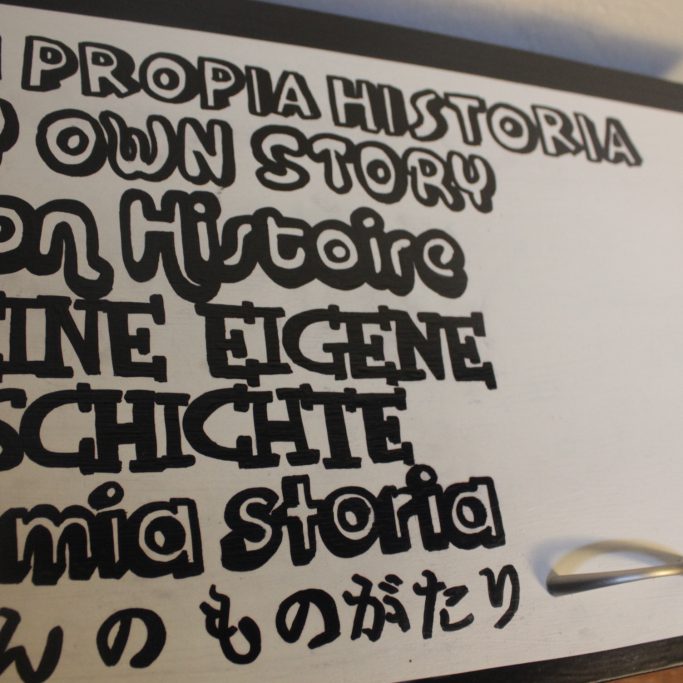 PROPIA HISTORIA
OWN STORY
on Histoire
EINE EIGENE
SCHICHTE
mia storia
んのものがたり